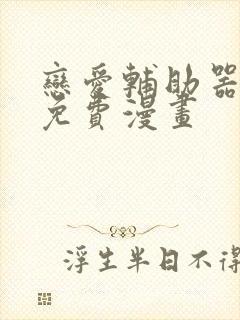 戀愛輔助器
免費漫畫
浮生半日不得